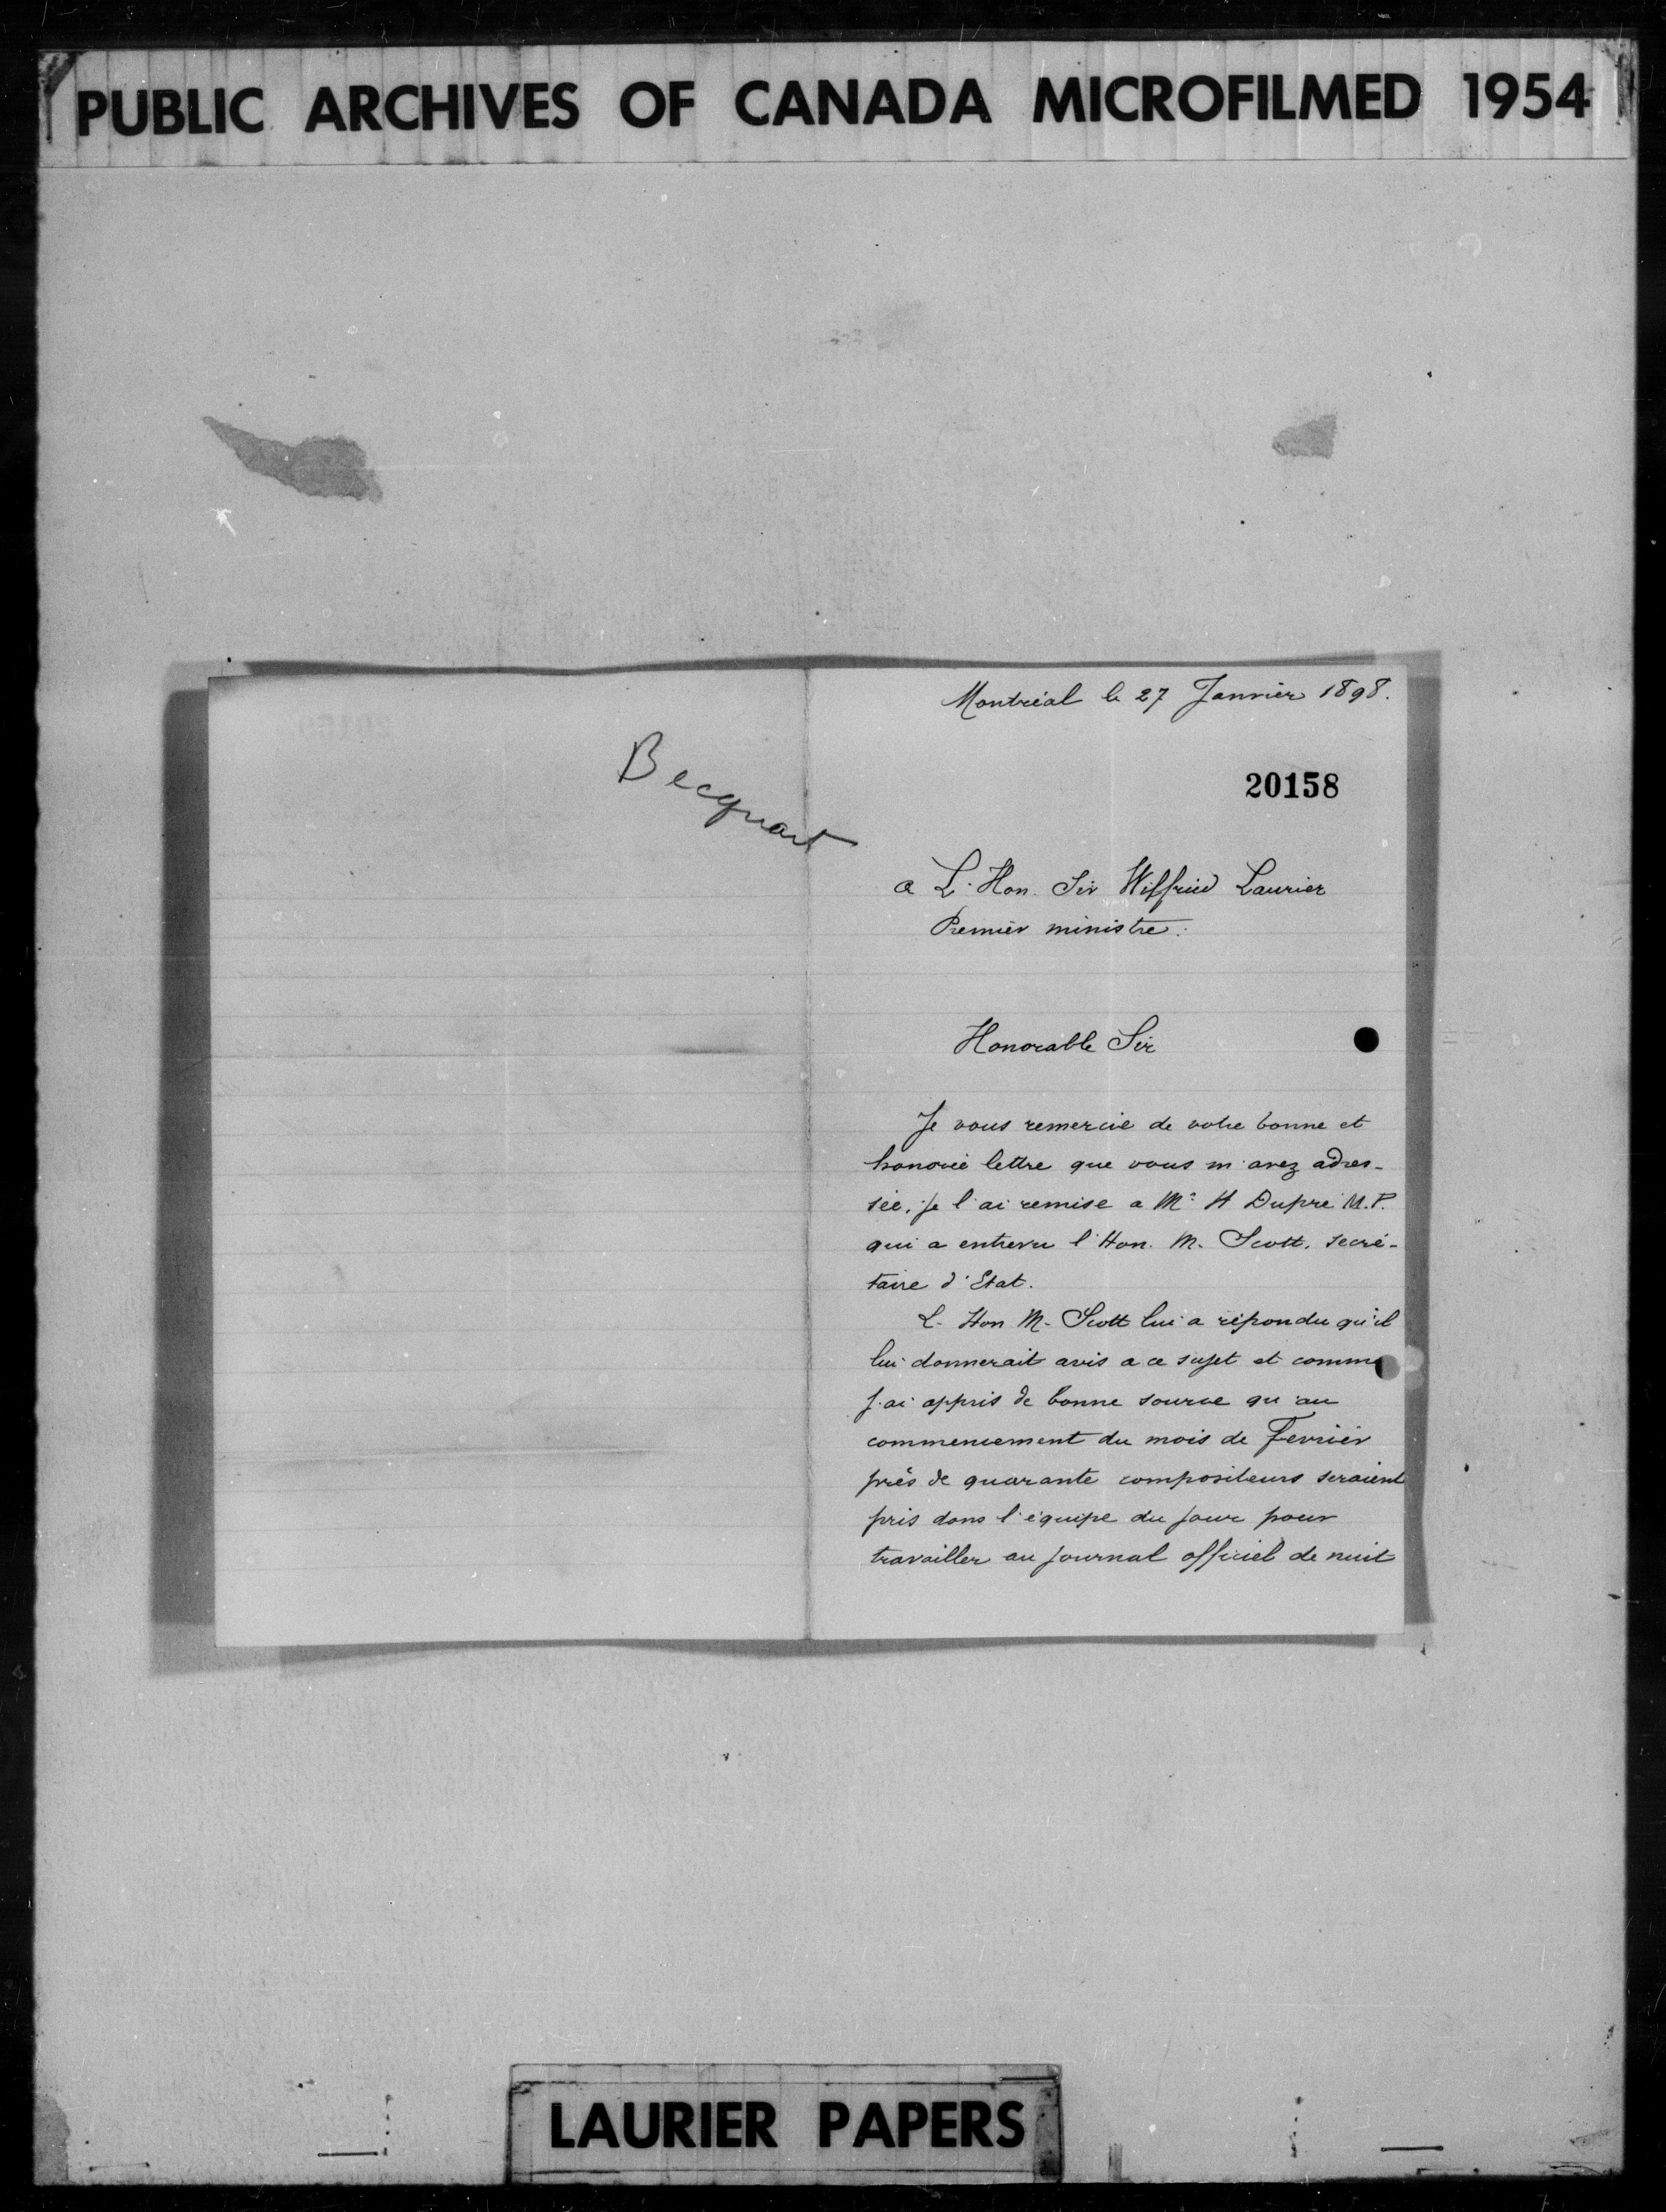 PUBLIC ARCHIVES OF CANADA MICROFILMED 1954
Becquart
Montréal le 27 Janvier 1898.
20158
a L'Hon. Sir Wilfried Laurier
Premier ministre.
Honorable Sir
Je vous remercie de votre bonne et
honorée lettre que vous m'avez adres-
sée, je l'ai remise a Mr H Dupré M.P.
qui a entrevu l'Hon. M. Scott, secré-
taire d'Etat.
L'Hon M. Scott lui a répondu qu'il
lui donnerait avis a ce sujet et comme
j'ai appris de bonne source qu'au
commencement du mois de Fevrier
près de quarante compositeurs seraient
pris dans l'équipe du jour pour
travailler au journal officiel de nuit
LAURIER PAPERS